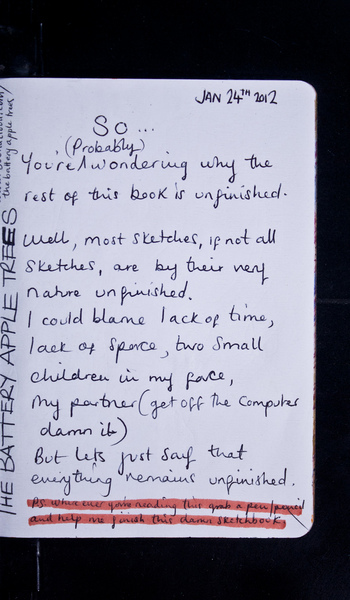 JAN 24TH 2012
So...
(Probably)
You're wondering why the
rest of this book is unfinished.
Well, most sketches, if not all
sketches, are by their very
nature unfinished.
I could blame lack of time,
lack of space, two small
children in my face,
my partner (get off the computer
damn it)
But lets just say that
everything remains unfinished.
PS. whatever your reading this grab a pen/pencil
and help me finish this damn sketchbook
THE BATTERY APPLE TREES
the battery apple trees/